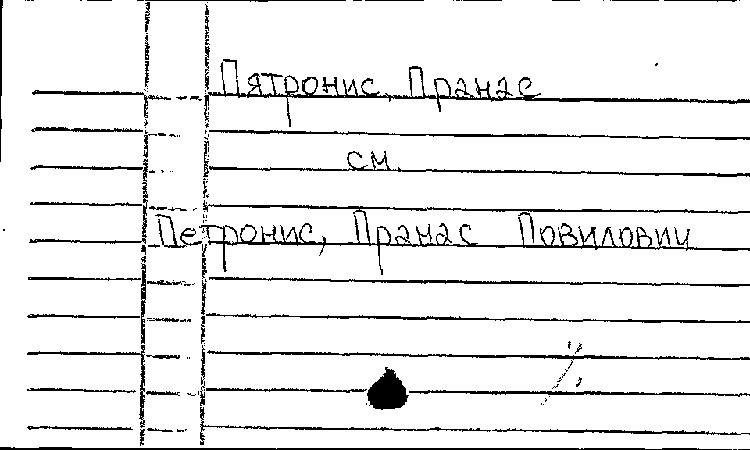 Пятронис, Пранас
см.
Петронис, Пранас Повилович